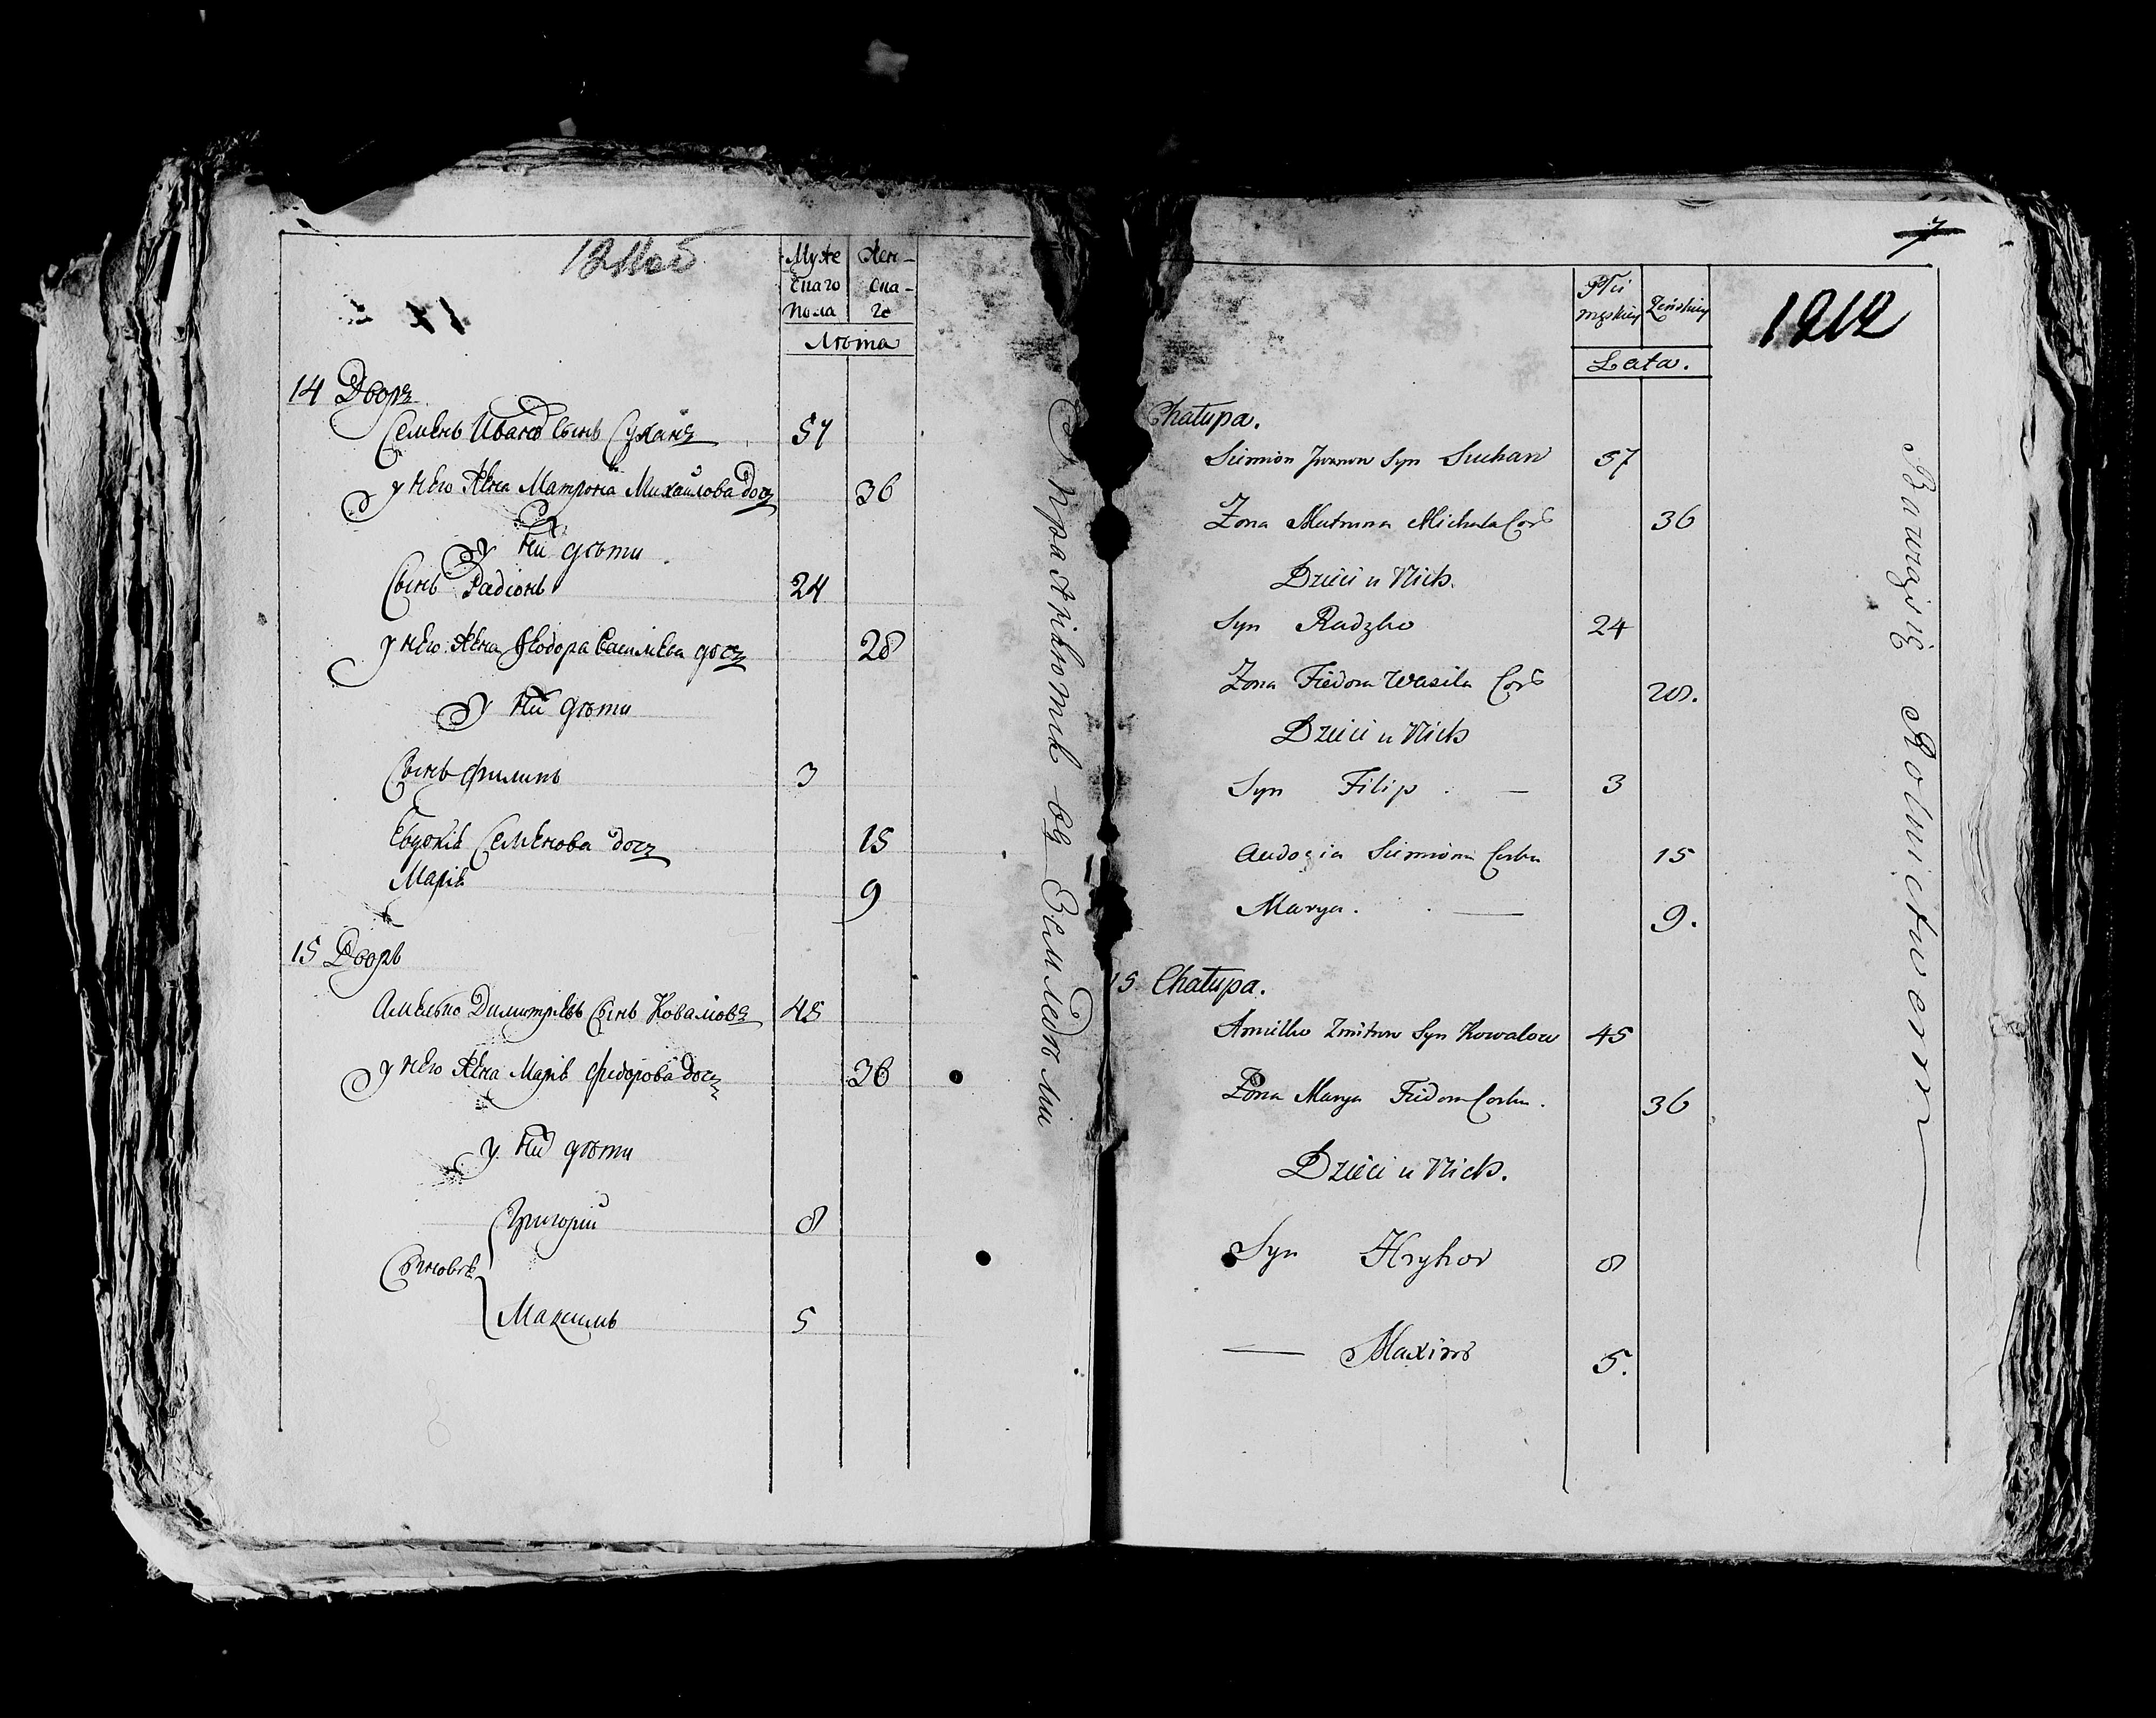 Муже
скаго
пола
Жен-
ска-
го
Лѣта
14 Дворъ
Семенъ Ивановъ сынъ Суханъ 57
у него жена Матрона Михайлова доч 36
У ней дѣти
Сынъ Радіонъ 24
у него жена Ѳеодора Василева доч 28
У ней дѣти
Сынъ Филипъ 3
Евдокія Семенова доч 15
Марія 9
15 Дворъ
Амелько Димитріевъ сынъ Ковалювъ 45
у него жена Марія Федорова доч 36
у ней дѣти
Сыновья
Григорій 8
Максимъ 5
Упражняются въ Земледѣліи
7
1212
Płci
męskiey
Żeńskiey
Lata.
Chałupa.
Siemion Iwanow Syn Suchan 57
Żona Matruna Michała Cor 36
Dzieci u Nich.
Syn Radzko 24
Żona Fiedora Wasila Cor 28.
Dzieci u Nich
Syn Filip . — 3
Audocia Siemiona Corka 15
Marya. — 9.
15 Chałupa.
Amielko Zmitrow Syn Kowalow 45
Żona Marya Fiedora Corka. 36
Dzieci u Nich.
Syn Hryhor 8
— Maxim 5.
Bawiący się Rolnictwem